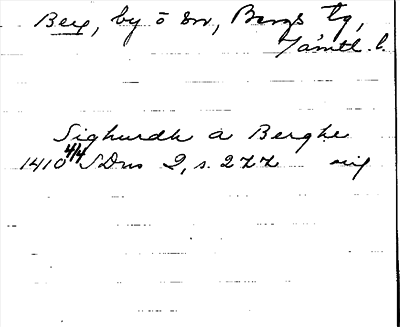 Berg, by o sn, Bergs tg,
Jämtl. l.
Sighurdh a Berghe
1410 4/4 SDns 2, s. 277 orig